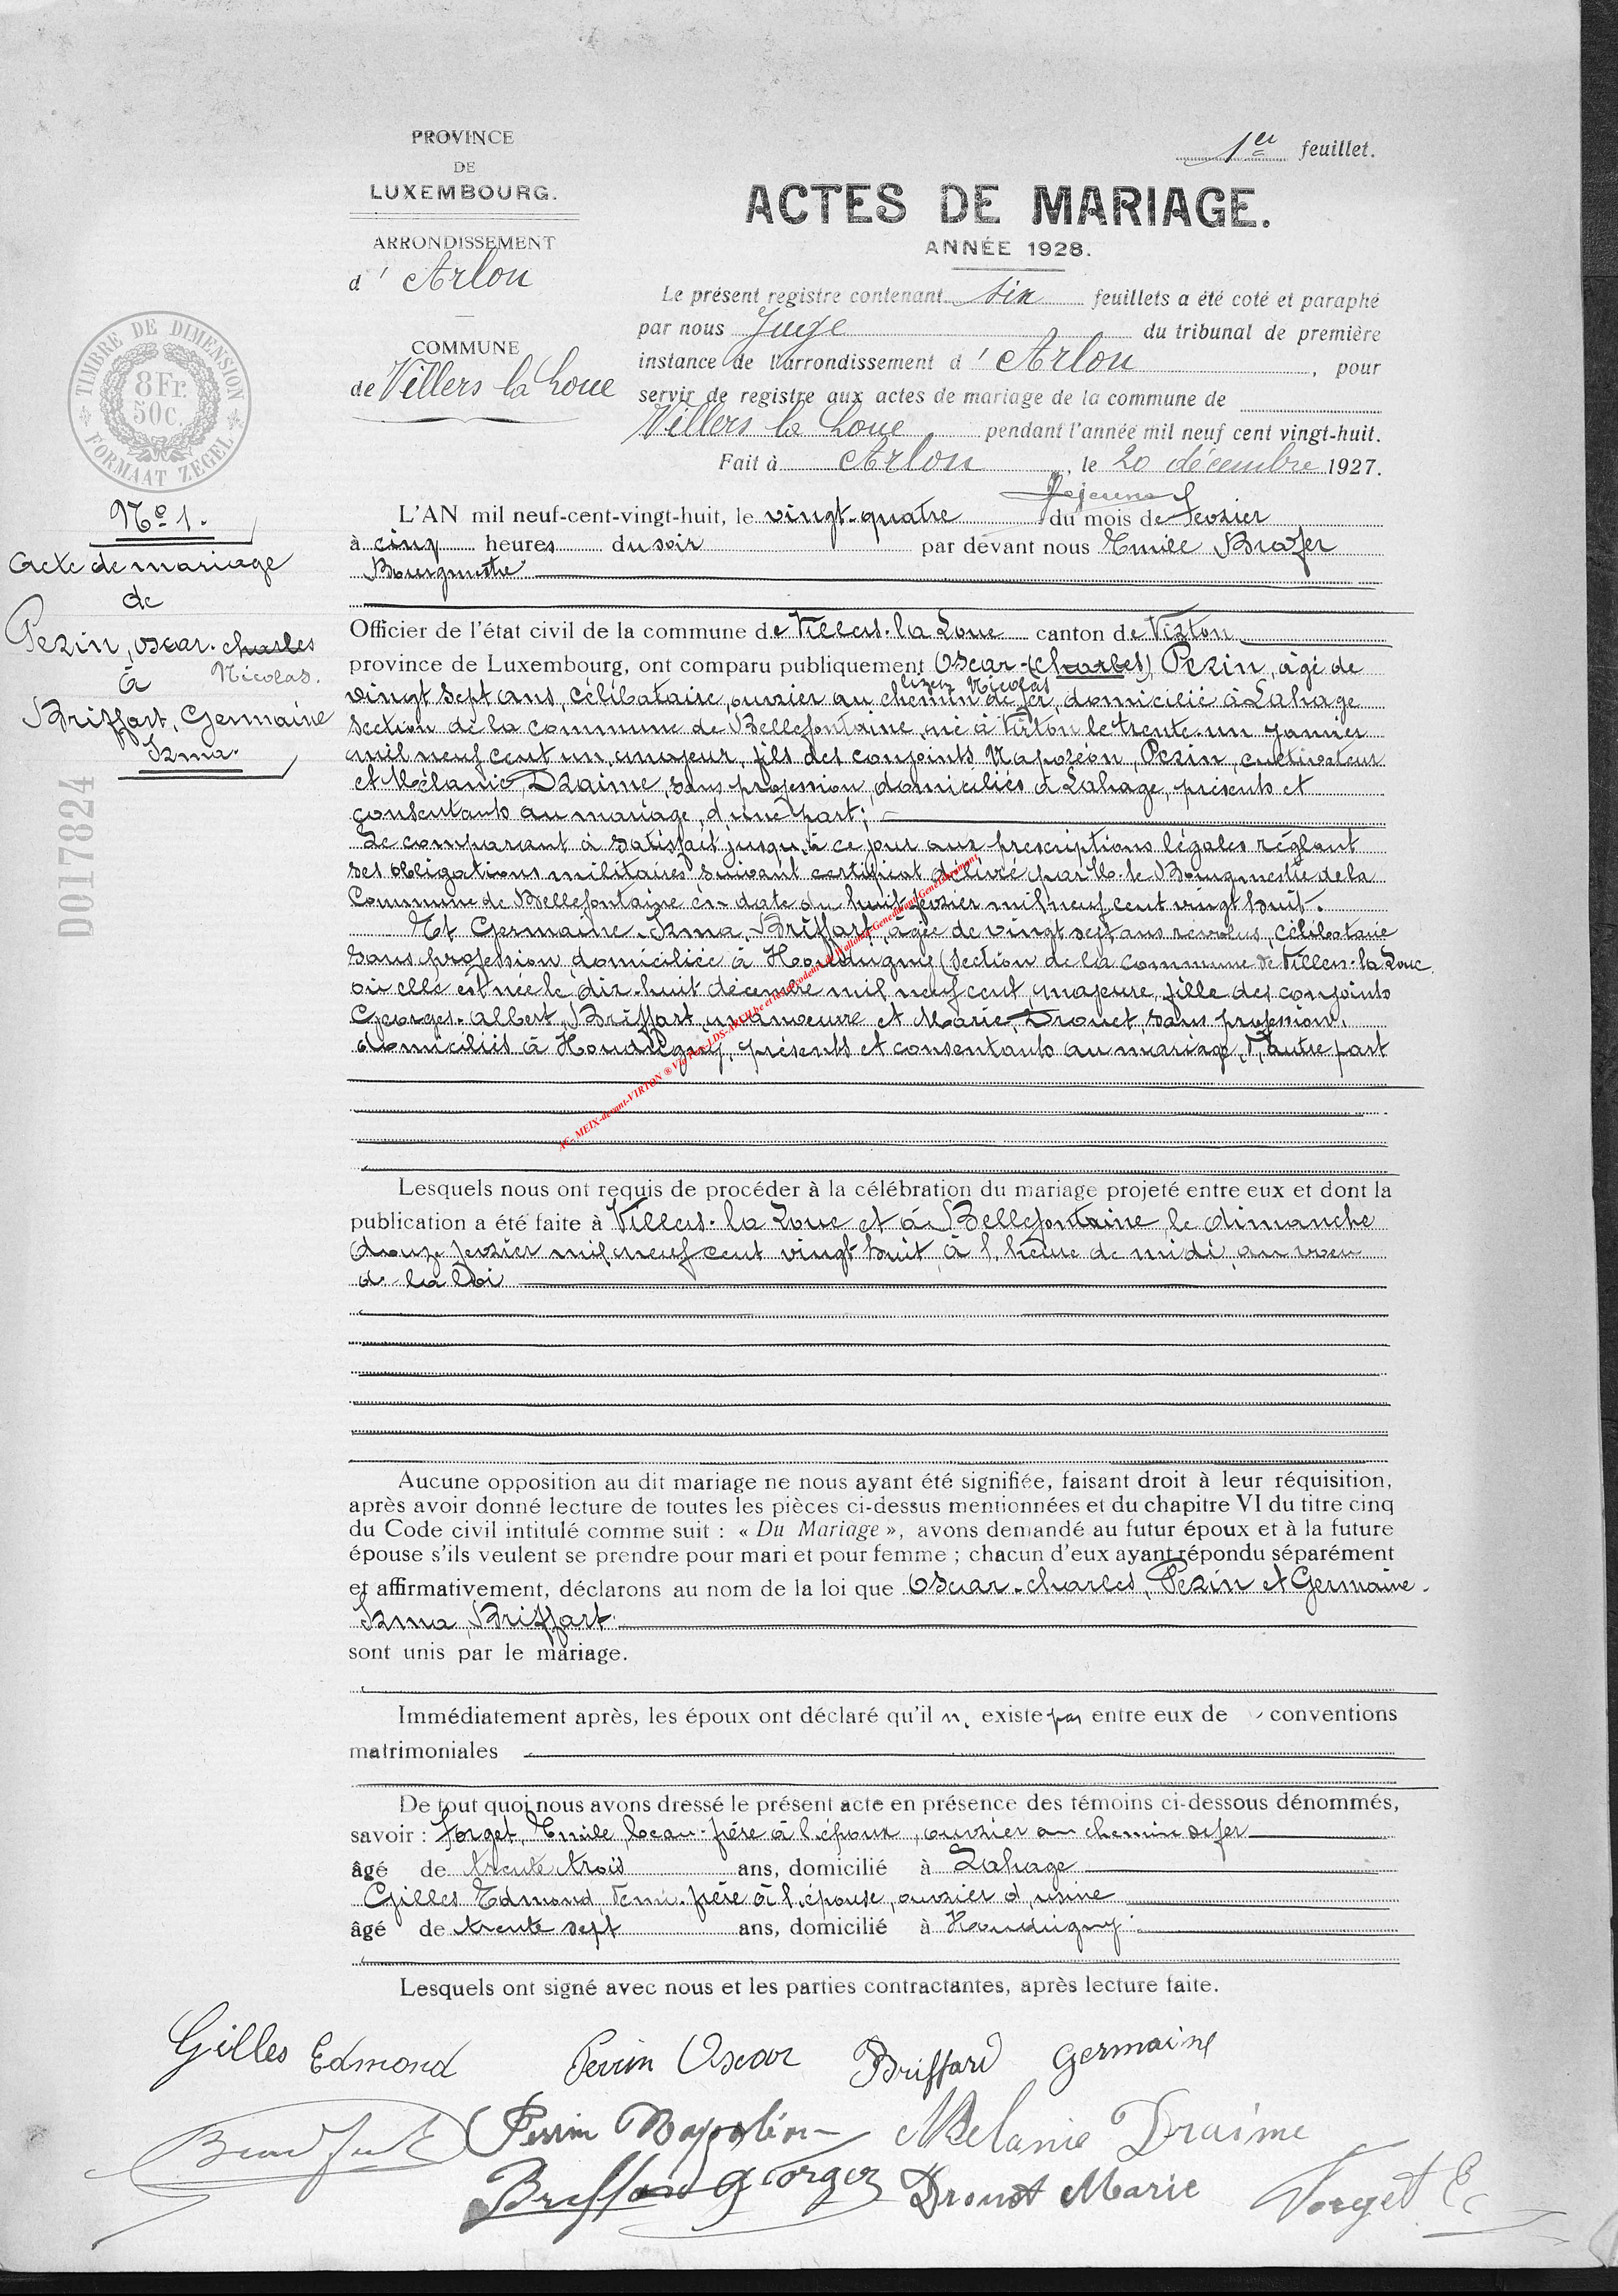 PROVINCE
DE
LUXEMBOURG.
ARRONDISSEMENT
d' Arlon
COMMUNE
de Villers la Loue
1er feuillet.
ACTES DE MARIAGE.
ANNÉE 1928.
Le présent registre contenant six feuillets a été coté et paraphé
par nous Juge du tribunal de première
instance de l'arrondissement d' Arlon, pour
servir de registre aux actes de mariage de la commune de
Villers la Loue pendant l'année mil neuf cent vingt-huit.
Fait à Arlon, le 20 décembre 1927.
TIMBRE DE DIMENSION
8 Fr.
50c.
FORMAAT ZEGEL
D017824
No 1.
Acte de mariage
de
Pezin, Oscar-Charles
à Nicolas.
Briffart, Germaine
Irma.
L'AN mil neuf-cent-vingt-huit, le vingt-quatre du mois de Fevrier
à cinq heures du soir par devant nous Emile
Bourgmestre
Officier de l'état civil de la commune de Villers-la-Loue canton de Virton
province de Luxembourg, ont comparu publiquement Oscar-(Charles) Pezin, âgé de
lizez Nicolas
vingt sept ans, célibataire, ouvrier au chemin de fer, domicilié à Lahage
section de la commune de Bellefontaine, né à Virton le trente-un Janvier
mil neuf cent un, majeur, fils des conjoints Napoléon, Pezin, cultivateur
et Mélanie Draime, sans profession, domiciliés à Lahage, présents et
consentants au mariage, d'une part;
Le comparant à satisfait jusqu'à ce jour aux prescriptions légales réglant
ses obligations militaires suivant certificat délivré par M. le Bourgmestre de la
Commune de Bellefontaine en date du huit fevrier mil neuf cent vingt huit.
Et Germaine-Irma, Briffart, âgée de vingt sept ans revolus, célibataire
sans profession domiciliée à Houdrigny (section de la commune de Villers-la-Loue
où elle est née le dix-huit décembre mil neuf cent, majeure, fille des conjoints
Georges-Albert, Briffart, manoeuvre et Marie, Drouet, sans profession,
domiciliés à Houdrigny, présents et consentants au mariage, d'autre part
AC- MEIX-devant-VIRTON
Lesquels nous ont requis de procéder à la célébration du mariage projeté entre eux et dont la
publication a été faite à Villers-la-Loue et à Bellefontaine, le dimanche
douze fevrier mil neuf cent vingt huit, à l'heure de midi, au voeu
de la loi
Aucune opposition au dit mariage ne nous ayant été signifiée, faisant droit à leur réquisition,
après avoir donné lecture de toutes les pièces ci-dessus mentionnées et du chapitre VI du titre cinq
du Code civil intitulé comme suit : « Du Mariage », avons demandé au futur époux et à la future
épouse s'ils veulent se prendre pour mari et pour femme ; chacun d'eux ayant répondu séparément
et affirmativement, déclarons au nom de la loi que Oscar-Charles, Pezin et Germaine-
Irma Briffart
sont unis par le mariage.
Immédiatement après, les époux ont déclaré qu'il n' existe pas entre eux de conventions
matrimoniales
De tout quoi nous avons dressé le présent acte en présence des témoins ci-dessous dénommés,
savoir : Forget, Emile, beau-frère à l'époux, ouvrier au chemin de fer
âgé de trente trois ans, domicilié à Lahage
Gilles Edmond, demi-frère à l'épouse, ouvrier d'usine
âgé de trente sept ans, domicilié à Houdrigny
Lesquels ont signé avec nous et les parties contractantes, après lecture faite.
Gilles Edmond Perrin Oscar Briffard Germaine
Perrin Napoléon Mélanie Draime
Briffard Georges Drouet Marie Forget E